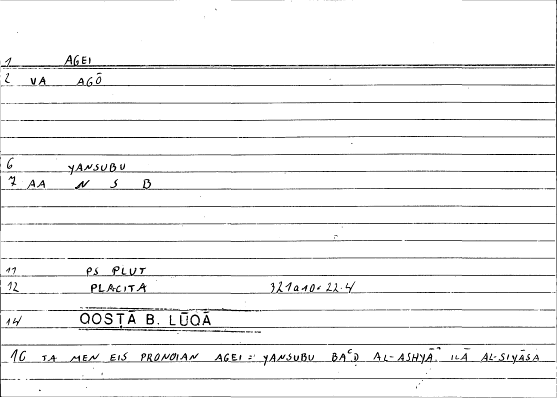 1 AGEI
2 VA AGŌ
6 YANSUBU
7 AA N S B
11 PS PLUT
12 PLACITA 321a10-22.4
14 QOSṬĀ B. LŪQĀ
16 TA MEN EIS PRONOIAN AGEI = YANSUBU BAʿḌ AL-ASHYĀʾ ILĀ AL-SIYĀSA